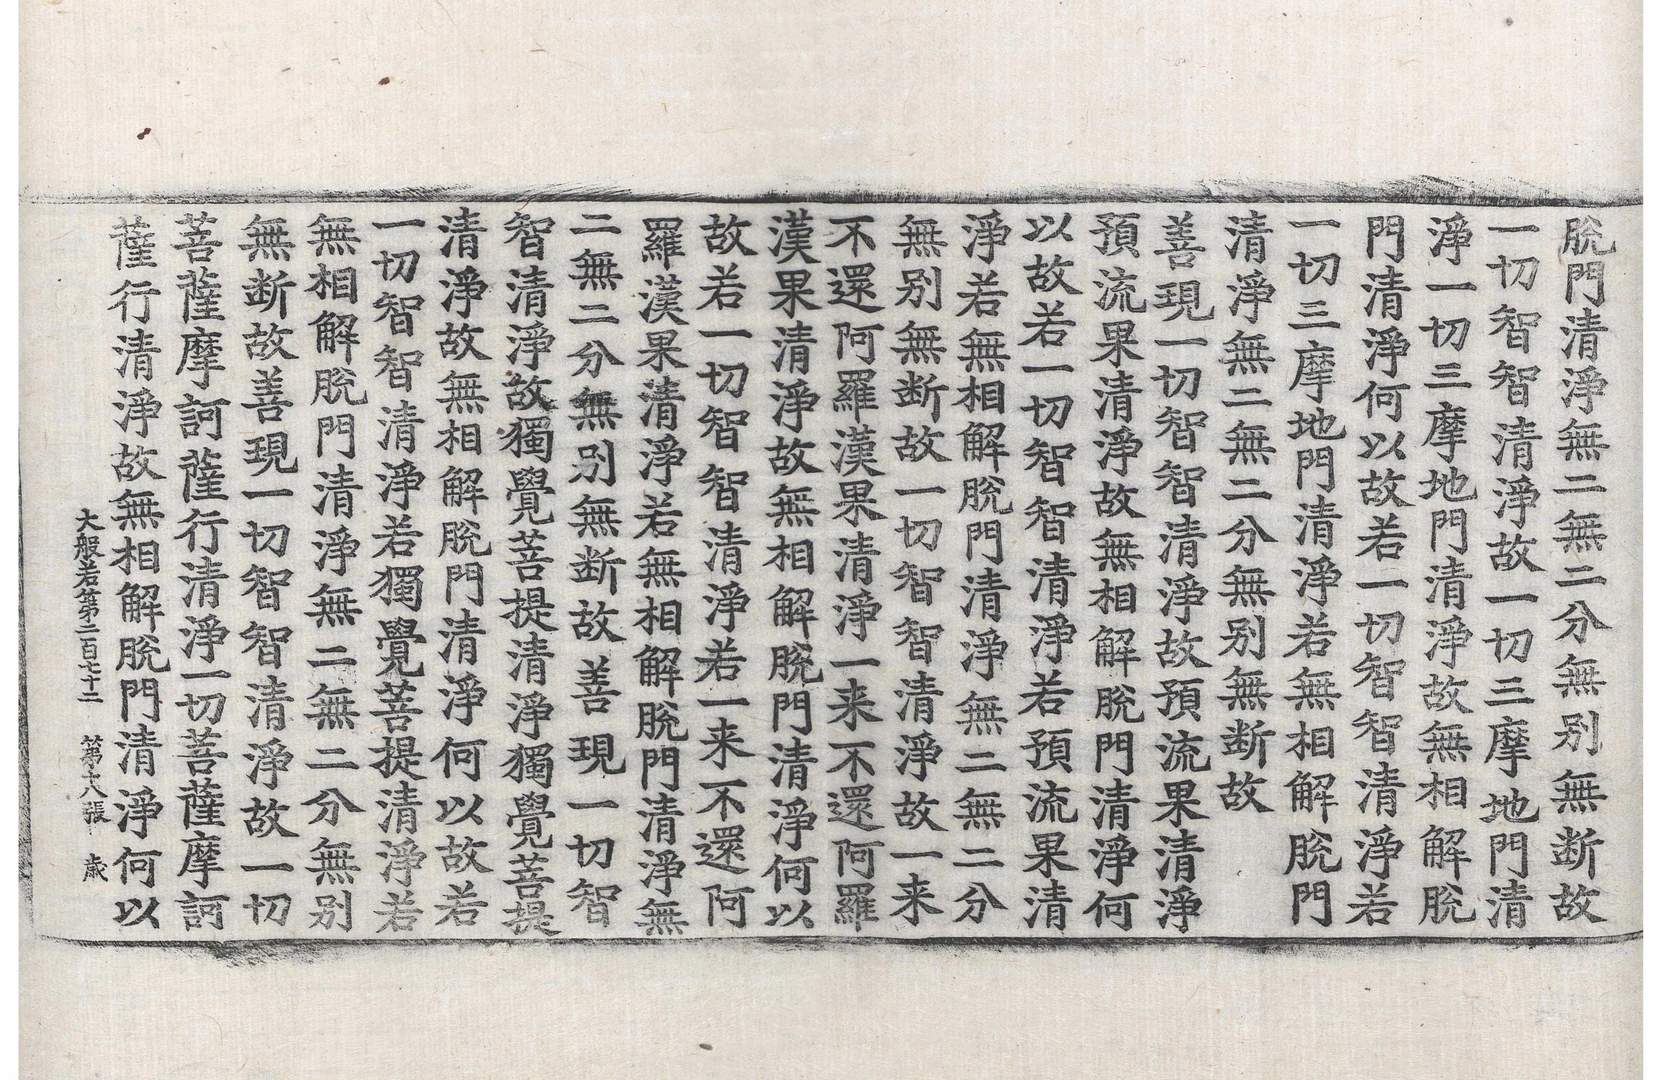 脫門清淨無二無二分無別無斷故
一切智智清淨故一切三摩地門清
淨一切三摩地門清淨故無相解脫
門清淨何以故若一切智智清淨若
一切三摩地門清淨若無相解脫門
清淨無二無二分無別無斷故
善現一切智智清淨故預流果清淨
預流果清淨故無相解脫門清淨何
以故若一切智智清淨若預流果清
淨若無相解脫門清淨無二無二分
無別無斷故一切智智清淨故一来
不還阿羅漢果清淨一来不還阿羅
漢果清淨故無相解脫門清淨何以
故若一切智智清淨若一来不還阿
羅漢果清淨若無相解脫門清淨無
二無二分無別無斷故善現一切智
智清淨故獨覺菩提清淨獨覺菩提
清淨故無相解脫門清淨何以故若
一切智智清淨若獨覺菩提清淨若
無相解脫門清淨無二無二分無別
無斷故善現一切智智清淨故一切
菩薩摩訶薩行清淨一切菩薩摩訶
薩行清淨故無相解脫門清淨何以
大般若第二百七十二 第十八張 歲